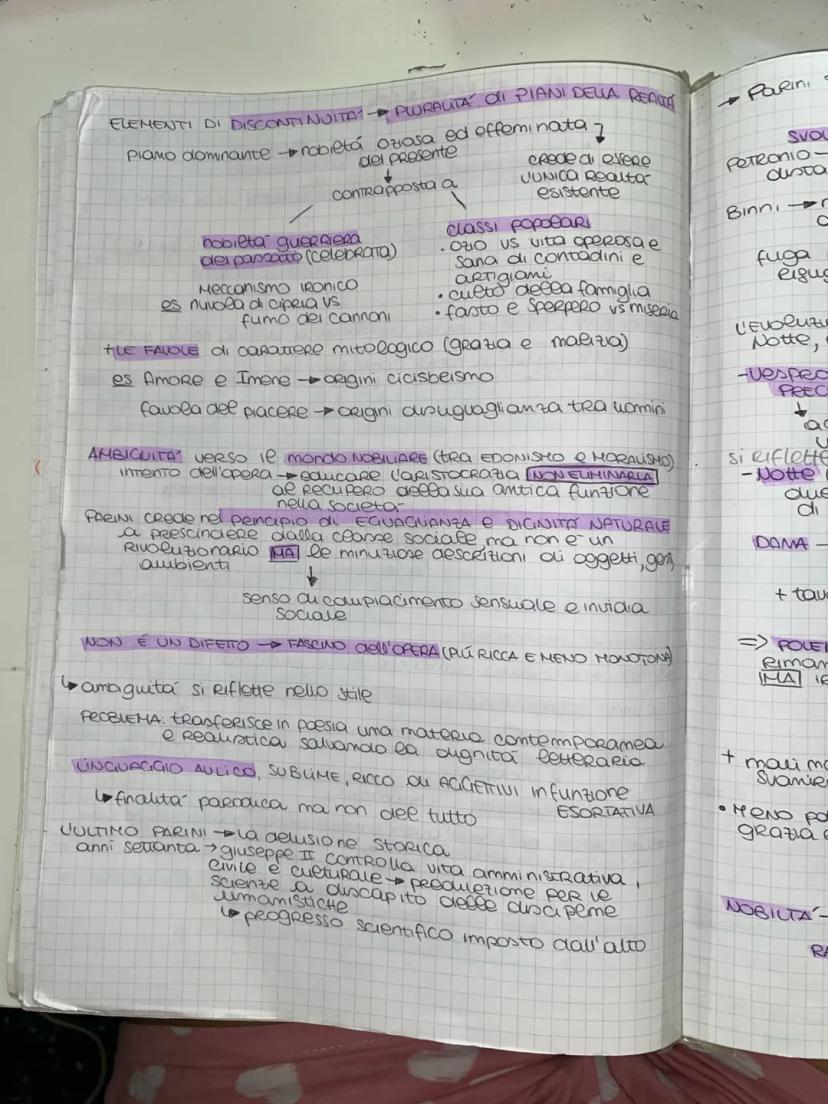 ELEMENTI DI DISCONTINUITÀ → PLURALITÀ di PIANI DELLA REALTÀ
piano dominante → nobiltà oziosa ed effeminata
del presente
CREDE di ESSERE
L'UNICA REALTÀ
esistente
contrapposta a
nobiltà guerriera
del passato (celebrata)
Meccanismo ironico
es nuvola di cipria vs
fumo dei cannoni
classi popolari
• ozio vs vita operosa e
sana di contadini e
artigiani
• culto della famiglia
• fasto e sperpero vs miseria
+ LE FAVOLE di carattere mitologico (grazia e malizia)
es Amore e Imene → origini cicisbeismo
favola del piacere → origini disuguaglianza tra uomini
AMBIGUITÀ verso il mondo NOBILIARE (TRA EDONISMO e MORALISMO)
intento dell'opera → educare l'aristocrazia NON ELIMINARLA
al recupero della sua antica funzione
nella società
PARINI CREDE nel principio di EGUAGLIANZA e DIGNITÀ NATURALE
a prescindere dalla classe sociale, ma non è un
RIVOLUZIONARIO MA le minuziose descrizioni di oggetti, gesti,
ambienti
senso di compiacimento sensuale e invidia
sociale
NON È UN DIFETTO → FASCINO dell'OPERA (PIÙ RICCA E MENO MONOTONA)
↳ ambiguità si riflette nello stile
PROBLEMA: trasferisce in poesia una materia contemporanea
e realistica salvando la dignità letteraria
LINGUAGGIO AULICO, SUBLIME, RICCO di AGGETTIVI in funzione
ESORTATIVA
↳ finalità parodica ma non del tutto
L'ULTIMO PARINI → La delusione storica
anni settanta → giuseppe II controlla vita amministrativa,
civile e culturale → predilezione per le
scienze a discapito delle discipline
umanistiche
↳ progresso scientifico imposto dall'alto
→ Parini
PETRONIO →
Binni →
fuga
Notte,
- Vespro
si riflette
- Notte
due
di
DAMA -
+
=>
MA
+
• MENO
grazia e
NOBILTÀ -